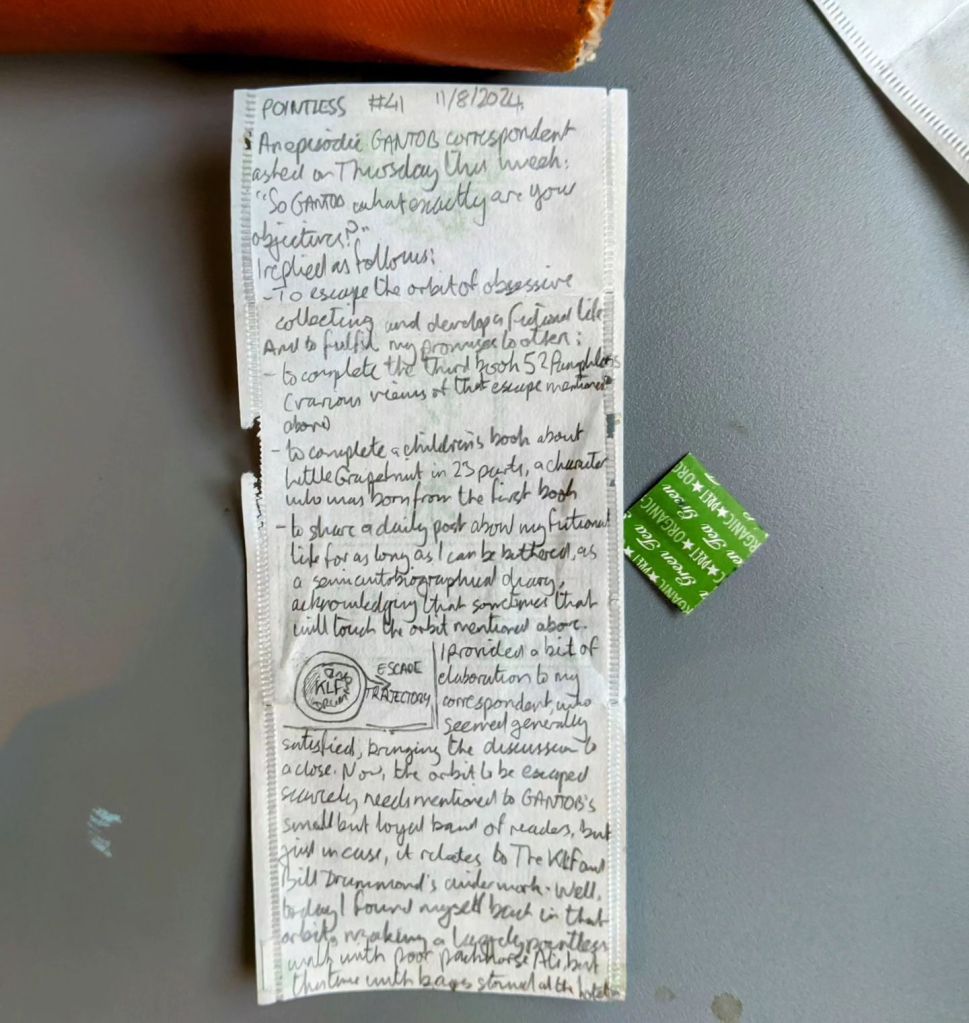 POINTLESS #41 11/8/2024
An episodic GANTOB correspondent
asked on Thursday this week:
"So GANTOB what exactly are your
objectives?".
I replied as follows:
- To escape the orbit of obsessive
collecting and develop a fictional life
And to fulfil my promises to others:
- to complete the third book 52 Pamphlets
(various views of that escape mentioned
above)
- to complete a children's book about
Little Grapefruit in 23 parts, a character
who was born from the first book
- to share a daily post about my fictional
life for as long as I can be bothered, as
a semiautobiographical diary,
acknowledging that sometimes that
will touch the orbit mentioned above.
KLF
DRUMMOND
ESCAPE
TRAJECTORY
I provided a bit of
elaboration to my
correspondent, who
seemed generally
satisfied, bringing the discussion to
a close. Now, the orbit to be escaped
scarcely needs mentioned to GANTOB's
small but loyal band of readers, but
just in case, it relates to The KLF and
Bill Drummond's wider work. Well,
today I found myself back in that
orbit, making a largely pointless
walk with poor packhorse Ali, but
this time with bags stored at the hotel
ORGANIC ★ PRET ★ ORGANIC
Green Tea